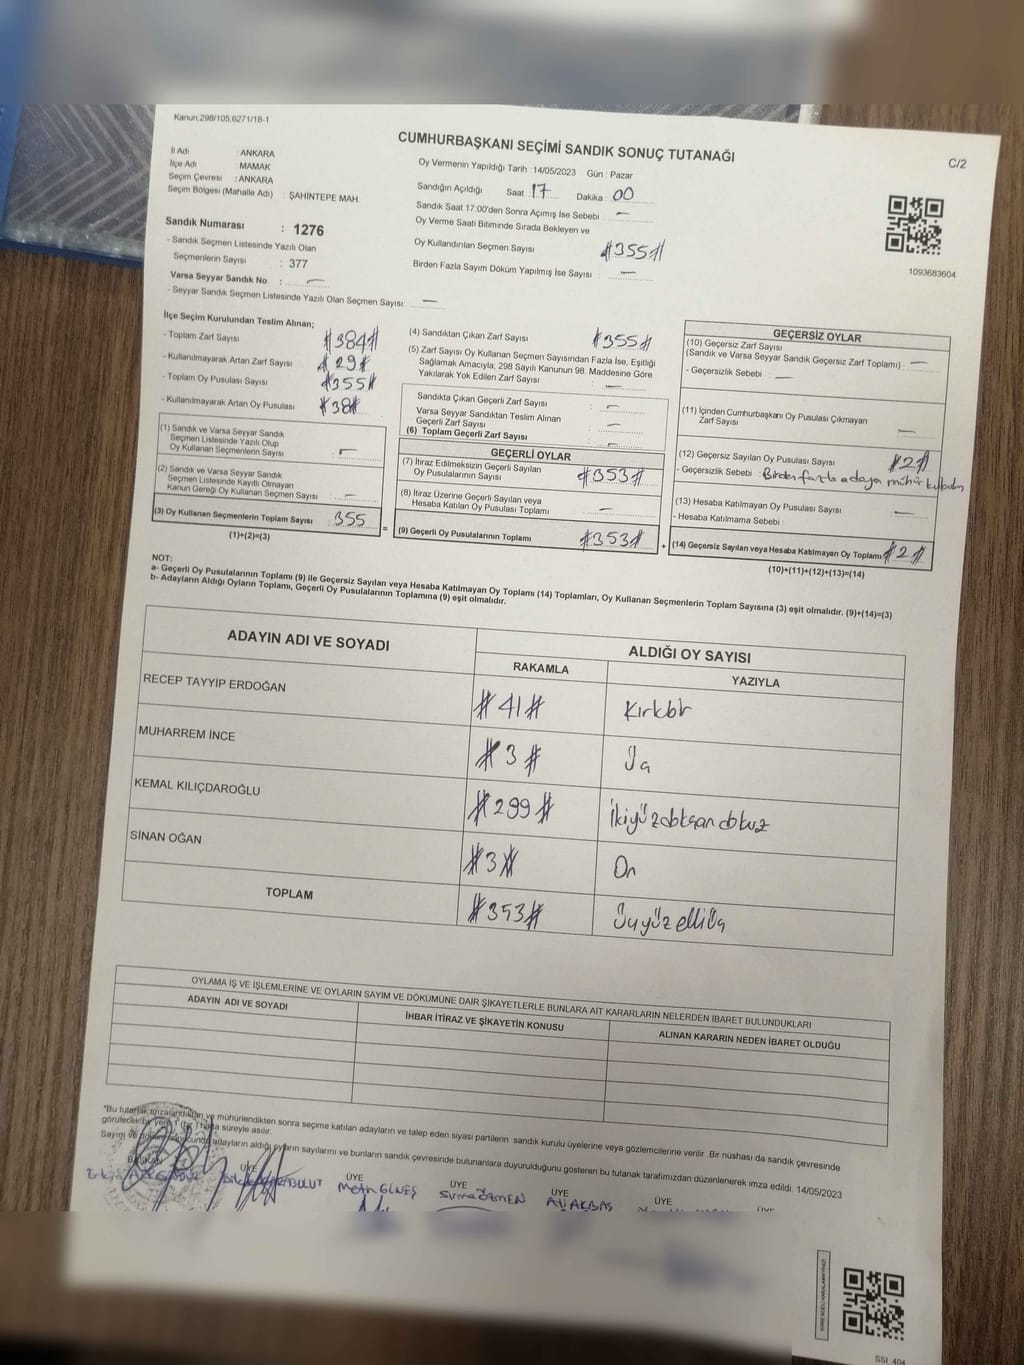 Kanun,298/105,6271/18-1
CUMHURBAŞKANI SEÇİMİ SANDIK SONUÇ TUTANAĞI
C/2
İl Adı : ANKARA
İlçe Adı : MAMAK
Seçim Çevresi : ANKARA
Seçim Bölgesi (Mahalle Adı) : ŞAHİNTEPE MAH.
Oy Vermenin Yapıldığı Tarih : 14/05/2023 Gün : Pazar
Sandığın Açıldığı Saat : 17 Dakika : 00
Sandık Saat 17:00'den Sonra Açımış İse Sebebi : —
Oy Verme Saati Bitiminde Sırada Bekleyen ve
Oy Kullandırılan Seçmen Sayısı #355#
Birden Fazla Sayım Döküm Yapılmış İse Sayısı : —
1093683604
Sandık Numarası : 1276
- Sandık Seçmen Listesinde Yazılı Olan
Seçmenlerin Sayısı : 377
Varsa Seyyar Sandık No : —
- Seyyar Sandık Seçmen Listesinde Yazılı Olan Seçmen Sayısı: —
İlçe Seçim Kurulundan Teslim Alınan;
- Toplam Zarf Sayısı #384#
- Kullanılmayarak Artan Zarf Sayısı #29#
- Toplam Oy Pusulası Sayısı #355#
- Kullanılmayarak Artan Oy Pusulası #38#
(1) Sandık ve Varsa Seyyar Sandık
Seçmen Listesinde Yazılı Olup
Oy Kullanan Seçmenlerin Sayısı : —
(2) Sandık ve Varsa Seyyar Sandık
Seçmen Listesinde Kayıtlı Olmayan
Kanun Gereği Oy Kullanan Seçmen Sayısı : —
(3) Oy Kullanan Seçmenlerin Toplam Sayısı : 355
(1)+(2)=(3)
=
(4) Sandıktan Çıkan Zarf Sayısı #355#
(5) Zarf Sayısı Oy Kullanan Seçmen Sayısından Fazla İse, Eşitliği
Sağlamak Amacıyla, 298 Sayılı Kanunun 98. Maddesine Göre
Yakılarak Yok Edilen Zarf Sayısı : —
Sandıkta Çıkan Geçerli Zarf Sayısı : —
Varsa Seyyar Sandıktan Teslim Alınan
Geçerli Zarf Sayısı : —
(6) Toplam Geçerli Zarf Sayısı : —
GEÇERLİ OYLAR
(7) İtiraz Edilmeksizin Geçerli Sayılan
Oy Pusulalarının Sayısı : #353#
(8) İtiraz Üzerine Geçerli Sayılan veya
Hesaba Katılan Oy Pusulası Toplamı : —
(9) Geçerli Oy Pusulalarının Toplamı : #353#
+
GEÇERSİZ OYLAR
(10) Geçersiz Zarf Sayısı
(Sandık ve Varsa Seyyar Sandık Geçersiz Zarf Toplamı) : —
- Geçersizlik Sebebi : —
(11) İçinden Cumhurbaşkanı Oy Pusulası Çıkmayan
Zarf Sayısı : —
(12) Geçersiz Sayılan Oy Pusulası Sayısı : #2#
- Geçersizlik Sebebi : Birden fazla adaya mühür
(13) Hesaba Katılmayan Oy Pusulası Sayısı : —
- Hesaba Katılmama Sebebi :
(14) Geçersiz Sayılan veya Hesaba Katılmayan Oy Toplamı : #2#
(10)+(11)+(12)+(13)=(14)
NOT:
a- Geçerli Oy Pusulalarının Toplamı (9) ile Geçersiz Sayılan veya Hesaba Katılmayan Oy Toplamı (14) Toplamları, Oy Kullanan Seçmenlerin Toplam Sayısına (3) eşit olmalıdır. (9)+(14)=(3)
b- Adayların Aldığı Oyların Toplamı, Geçerli Oy Pusulalarının Toplamına (9) eşit olmalıdır.
ADAYIN ADI VE SOYADI ALDIĞI OY SAYISI
RAKAMLA YAZIYLA
RECEP TAYYİP ERDOĞAN #41# Kırkbir
MUHARREM İNCE #3# Üç
KEMAL KILIÇDAROĞLU #299# İkiyüzdoksandokuz
SİNAN OĞAN #3# On
TOPLAM #353# Üçyüzelliüç
OYLAMA İŞ VE İŞLEMLERİNE VE OYLARIN SAYIM VE DÖKÜMÜNE DAİR ŞİKAYETLERLE BUNLARA AİT KARARLARIN NELERDEN İBARET BULUNDUKLARI
ADAYIN ADI VE SOYADI İHBAR İTİRAZ VE ŞİKAYETİN KONUSU ALINAN KARARIN NEDEN İBARET OLDUĞU
"Bu tutanak imzalandıktan ve mühürlendikten sonra seçime katılan adayların ve talep eden siyasi partilerin sandık kurulu üyelerine veya gözlemcilerine verilir. Bir nüshası da sandık çevresinde
görülecek bir yere 1 (bir) hafta süreyle asılır.
Sayım ve döküm sonucunda adayların aldığı oyların sayılarını ve bunların sandık çevresinde bulunanlara duyurulduğunu gösteren bu tutanak tarafımızdan düzenlenerek imza edildi. 14/05/2023
BAŞKAN ÜYE ÜYE ÜYE ÜYE ÜYE ÜYE
KARABULUT Metin GÜNEŞ Ali AKBAŞ
SSI_404